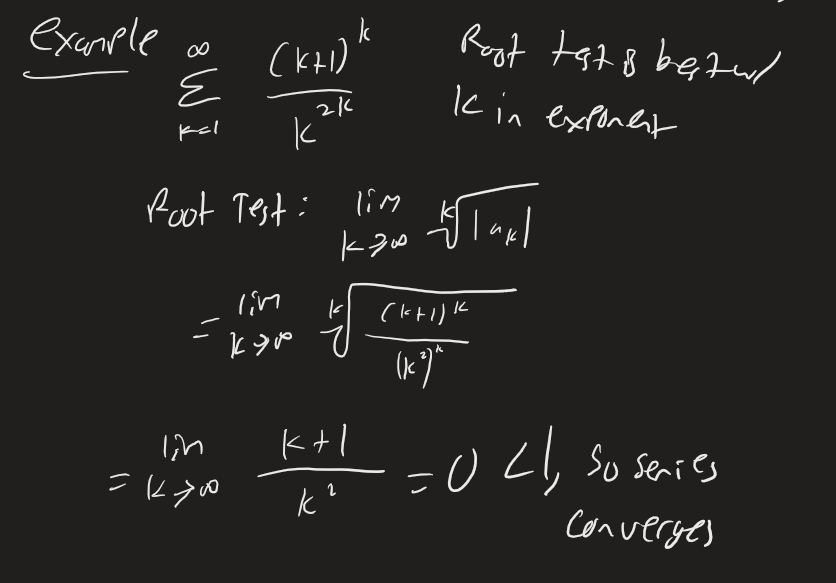 Example ∞ ∑ k=1 (k+1)^k / k^{2k} Root test is best w/
k in exponent
Root Test: lim k→∞ ᵏ√|a_k|
= lim k→∞ ᵏ√((k+1)^k / (k²)^k)
= lim k→∞ (k+1) / k² = 0 < 1, so series
converges